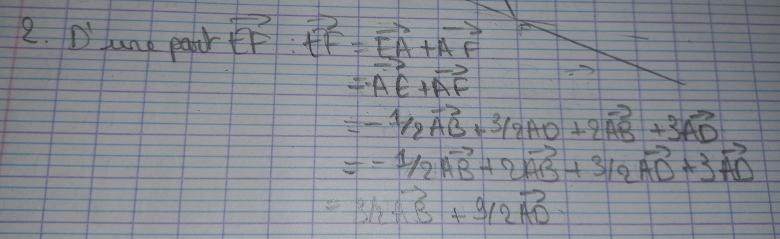 2. D'une part \overrightarrow{EF} : \overrightarrow{EF} = \overrightarrow{EA} + \overrightarrow{AF}
= -\overrightarrow{AE} + \overrightarrow{AF}
= -1/2\overrightarrow{AB} + 3/2AD + 2\overrightarrow{AB} + 3\overrightarrow{AD}
= -1/2\overrightarrow{AB} + 2\overrightarrow{AB} + 3/2\overrightarrow{AD} + 3\overrightarrow{AD}
= 3/2\overrightarrow{AB} + 9/2\overrightarrow{AD}